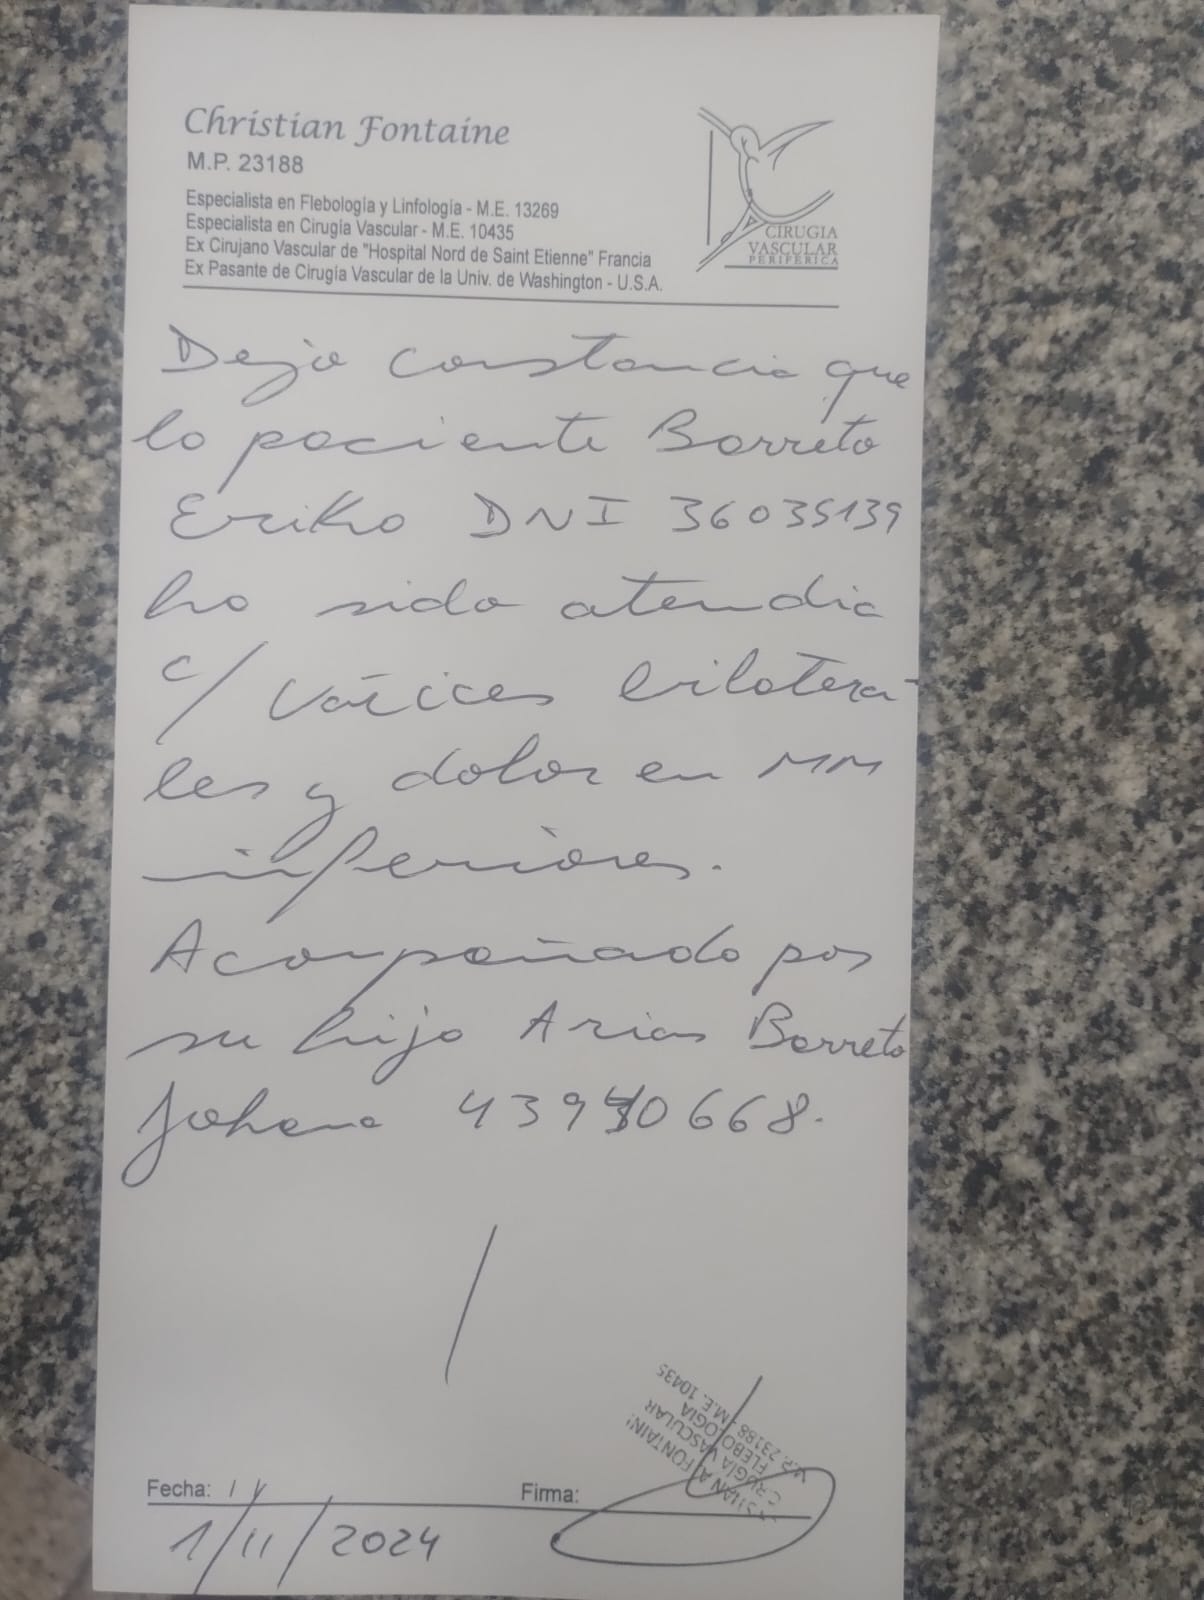 Christian Fontaine
M.P. 23188
Especialista en Flebología y Linfología - M.E. 13269
Especialista en Cirugía Vascular - M.E. 10435
Ex Cirujano Vascular de "Hospital Nord de Saint Etienne" Francia
Ex Pasante de Cirugía Vascular de la Univ. de Washington - U.S.A.
CIRUGIA
VASCULAR
PERIFERICA
Dejo constancia que
la paciente Barreto
Erika DNI 36035139
ha sido atendia
c/ várices bilatera-
les y dolor en MM
inferiores.
Acompañado por
su hijo Arias Barreto
Johana 43940668.
Fecha:
1/11/2024
Firma:
FONTAIN
CIRUGÍA VASCULAR
FLEBOLOGIA
M.P. 23188 - M.E. 10435